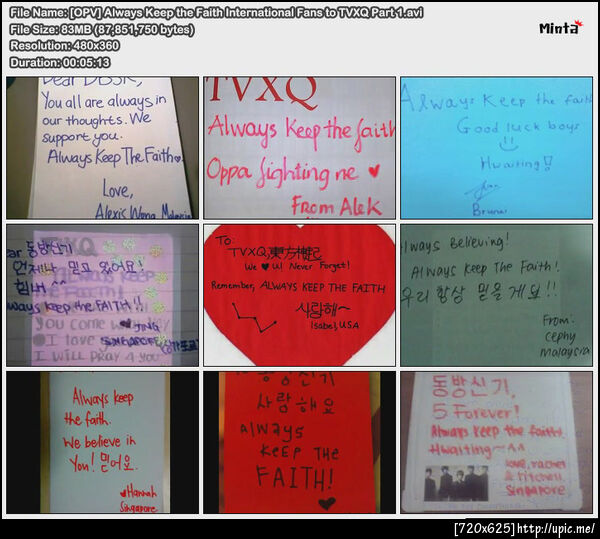 File Name: [OPV] Always Keep the Faith International Fans to TVXQ Part 1.avi
File Size: 83MB (87,851,750 bytes)
Resolution: 480x360
Duration: 00:05:13
Minta
Dear DBSK,
You all are always in
our thoughts. We
support you.
Always Keep The Faith
Love,
Alexic Wong Malaysia
TVXQ
Always Keep the faith
Oppa fighting ne
From Alek
Always Keep the faith
Good luck boys
Hwaiting!!
Brunei
동방신기
언제나 믿고 있어요!
힘내 ^^
Always keep the FAITH!!
I love
SINGAPORE
I WILL PRAY 4 YOU
To:
TVXQ,東方神起
We U! Never Forget!
Remember, ALWAYS KEEP THE FAITH
사랑해~
Isabel, USA
Always Believing!
Always Keep The Faith!
우리 항상 믿을게요!!
From:
cephy
malaysia
Always keep
the faith.
We believe in
You! 믿어요.
Hannah
Singapore
동방신기
사랑해요
Always
KEEP THE
FAITH!
동방신기,
5 Forever!
Always Keep the faith!
Hwaiting~^^
love, rachel
&
Singapore
[720x625]http://upic.me/